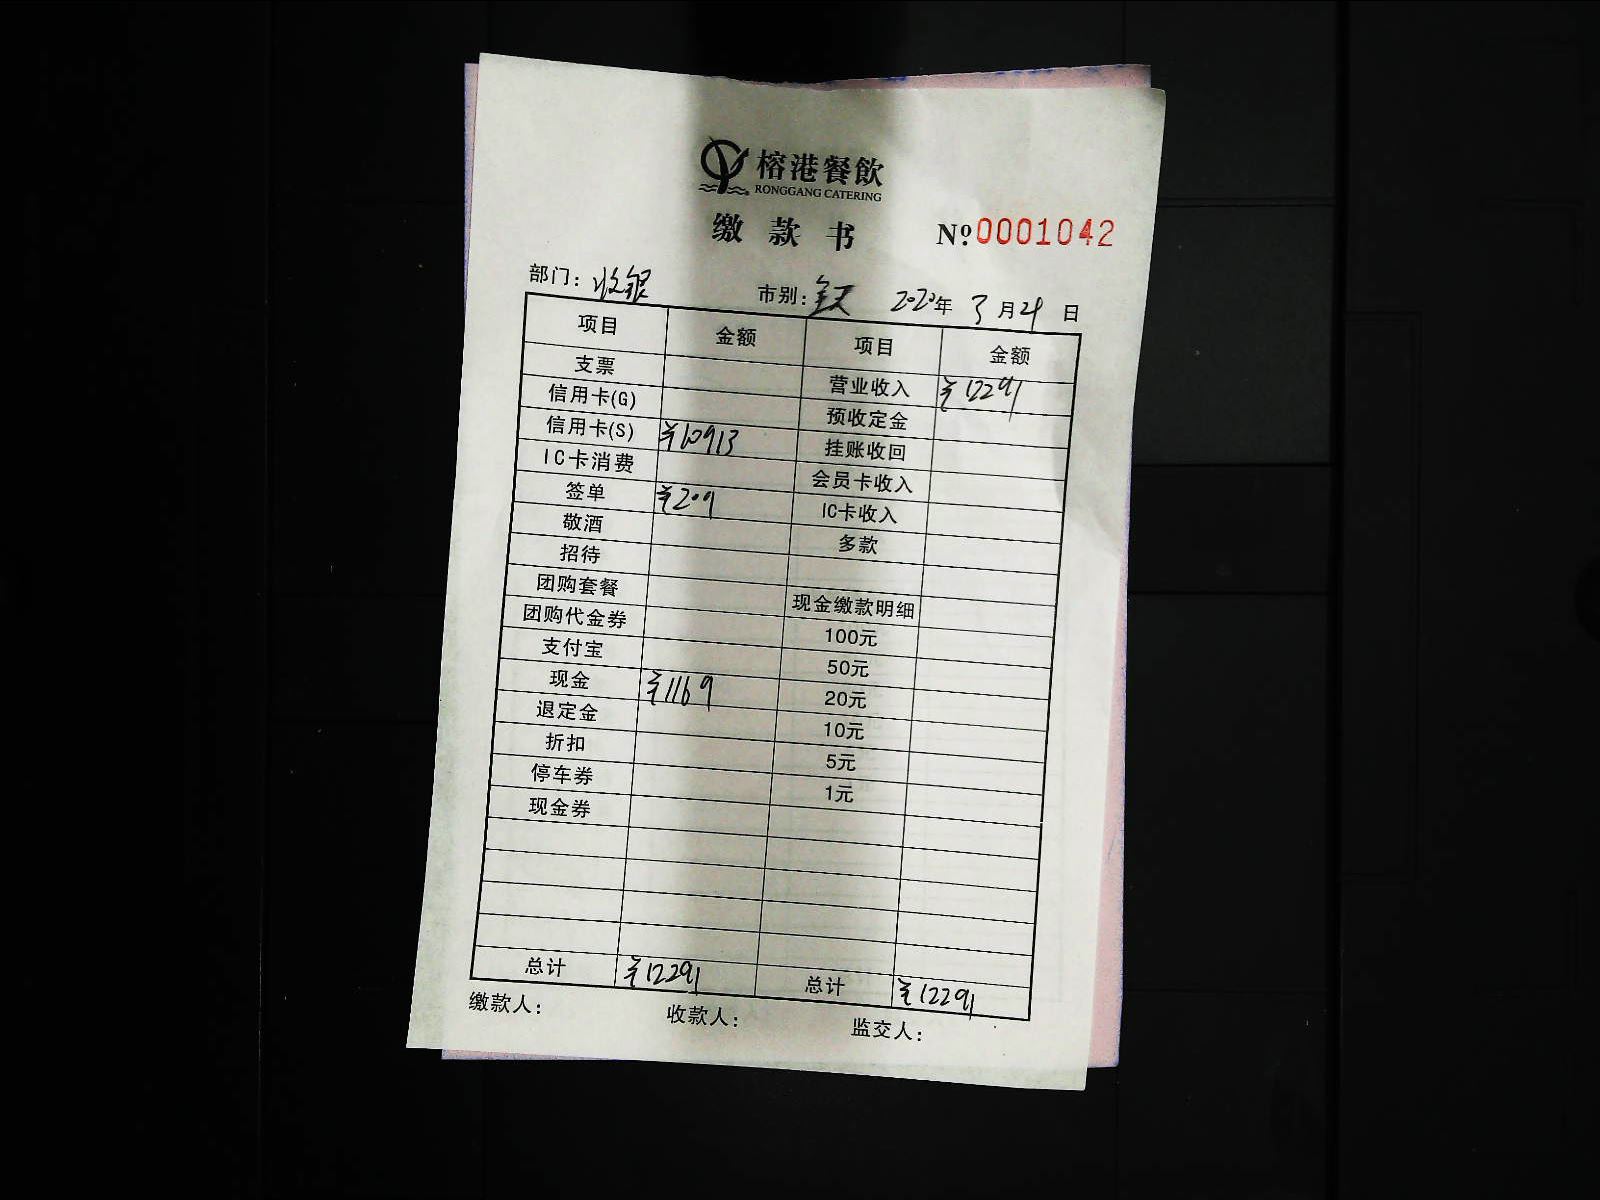 榕港餐飲
RONGGANG CATERING
缴款书 Nº0001042
部门：收银 市别：全天 2020年3月21日
项目 金额 项目 金额
支票 营业收入 ¥12291
信用卡(G) 预收定金
信用卡(S) ¥10913 挂账收回
IC卡消费 会员卡收入
签单 ¥209 IC卡收入
敬酒 多款
招待
团购套餐 现金缴款明细
团购代金券 100元
支付宝 50元
现金 ¥1169 20元
退定金 10元
折扣 5元
停车券 1元
现金券
总计 ¥12291 总计 ¥12291
缴款人： 收款人： 监交人：